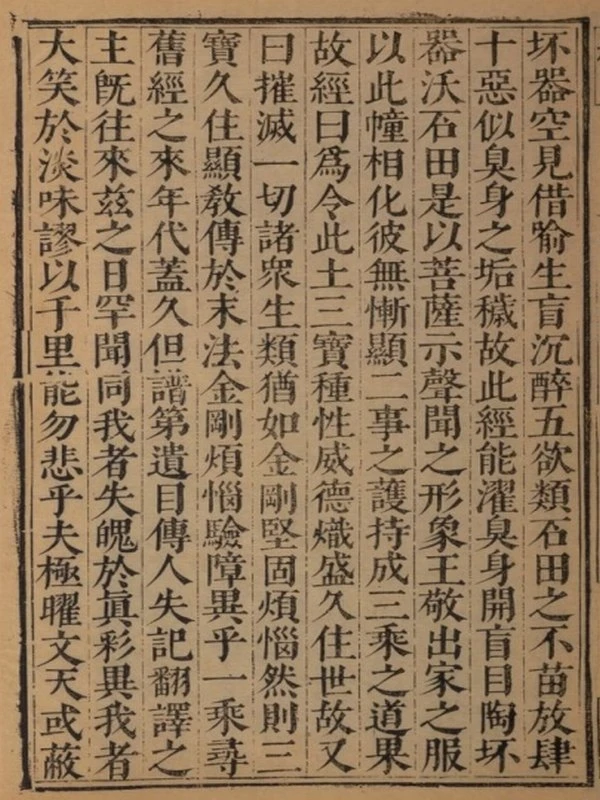 坏器空見借喻生盲沉醉五欲類石田之不苗放肆
十惡似臭身之垢穢故此經能濯臭身開盲目陶坏
器沃石田是以菩薩示聲聞之形象王敬出家之服
以此幢相化彼無慚顯二事之護持成三乘之道果
故經曰爲令此土三寶種性威德熾盛久住世故又
曰摧滅一切諸衆生類猶如金剛堅固煩惱然則三
寶久住顯敎傳於末法金剛煩惱驗障異乎一乘尋
舊經之來年代蓋久但譜第遺目傳人失記翻譯之
主旣往來茲之日罕聞同我者失魄於眞彩異我者
大笑於淡味謬以千里能勿悲乎夫極曜文天或蔽